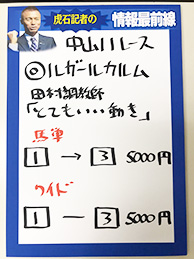 虎石記者の
情報最前線
中山11レース
◎ルガールカルム
田村調教師
「とてもいい動き」
馬単
1 → 3 5000円
ワイド
1 ー 3 5000円